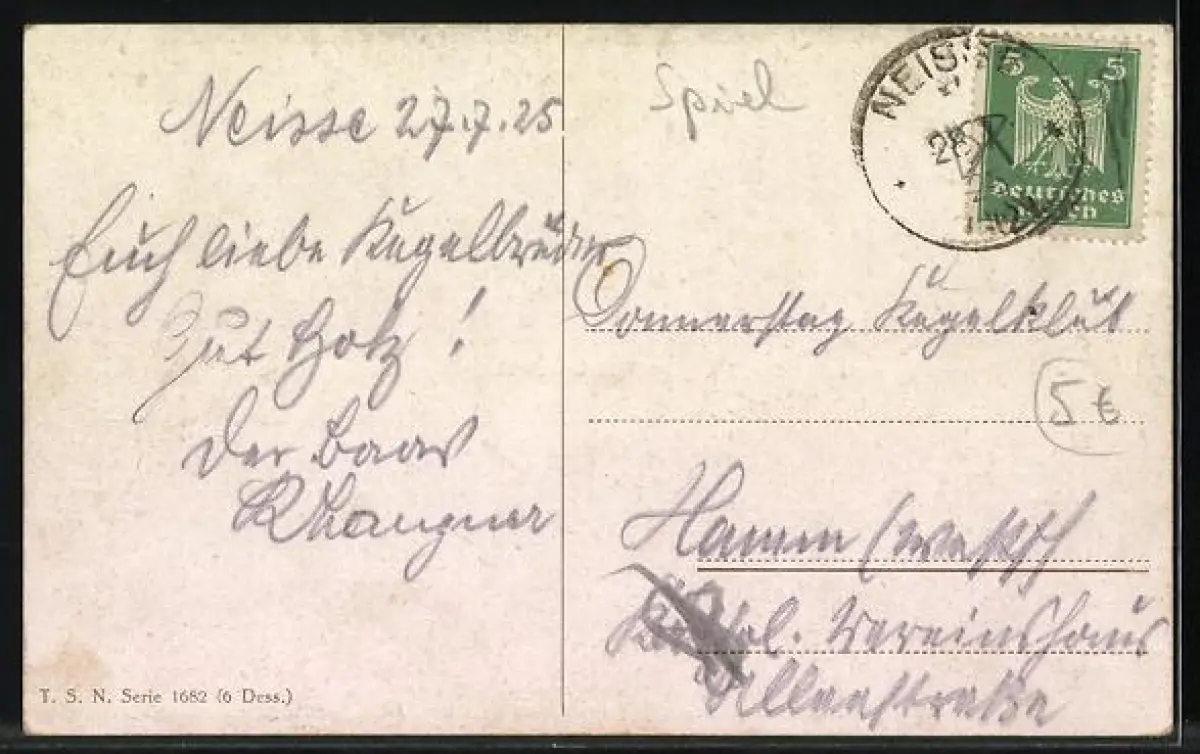 Neisse 27.7.25
Euch liebe Kegelbrüder
Gut Holz!
Der Baas
T. S. N. Serie 1682 (6 Dess.)
Spiel
NEISSE
5 5
Deutsches
Donnerstag Kegelklub
5 €
Hamm (Westf)
Vereinshaus